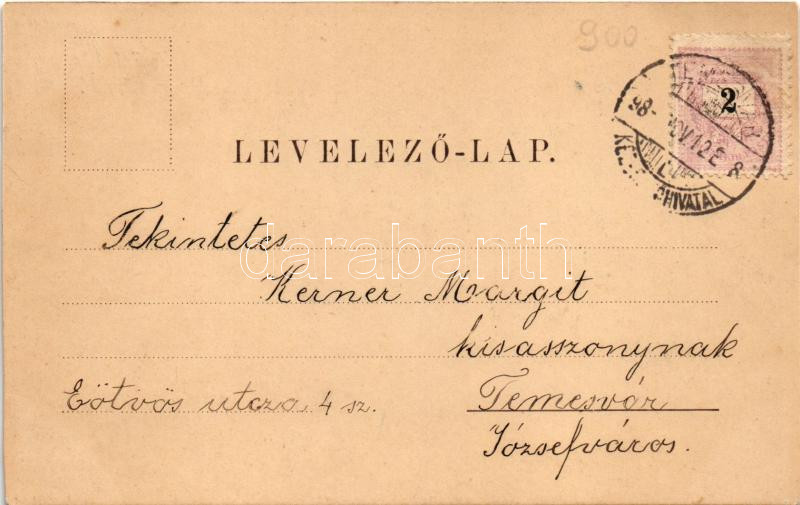 900
2
98
LEVELEZŐ-LAP.
HIVATAL
Tekintetes
darabanth
Kerner Margit
kisasszonynak
Eötvös utcza 4 sz.
Temesvár
Józsefváros.